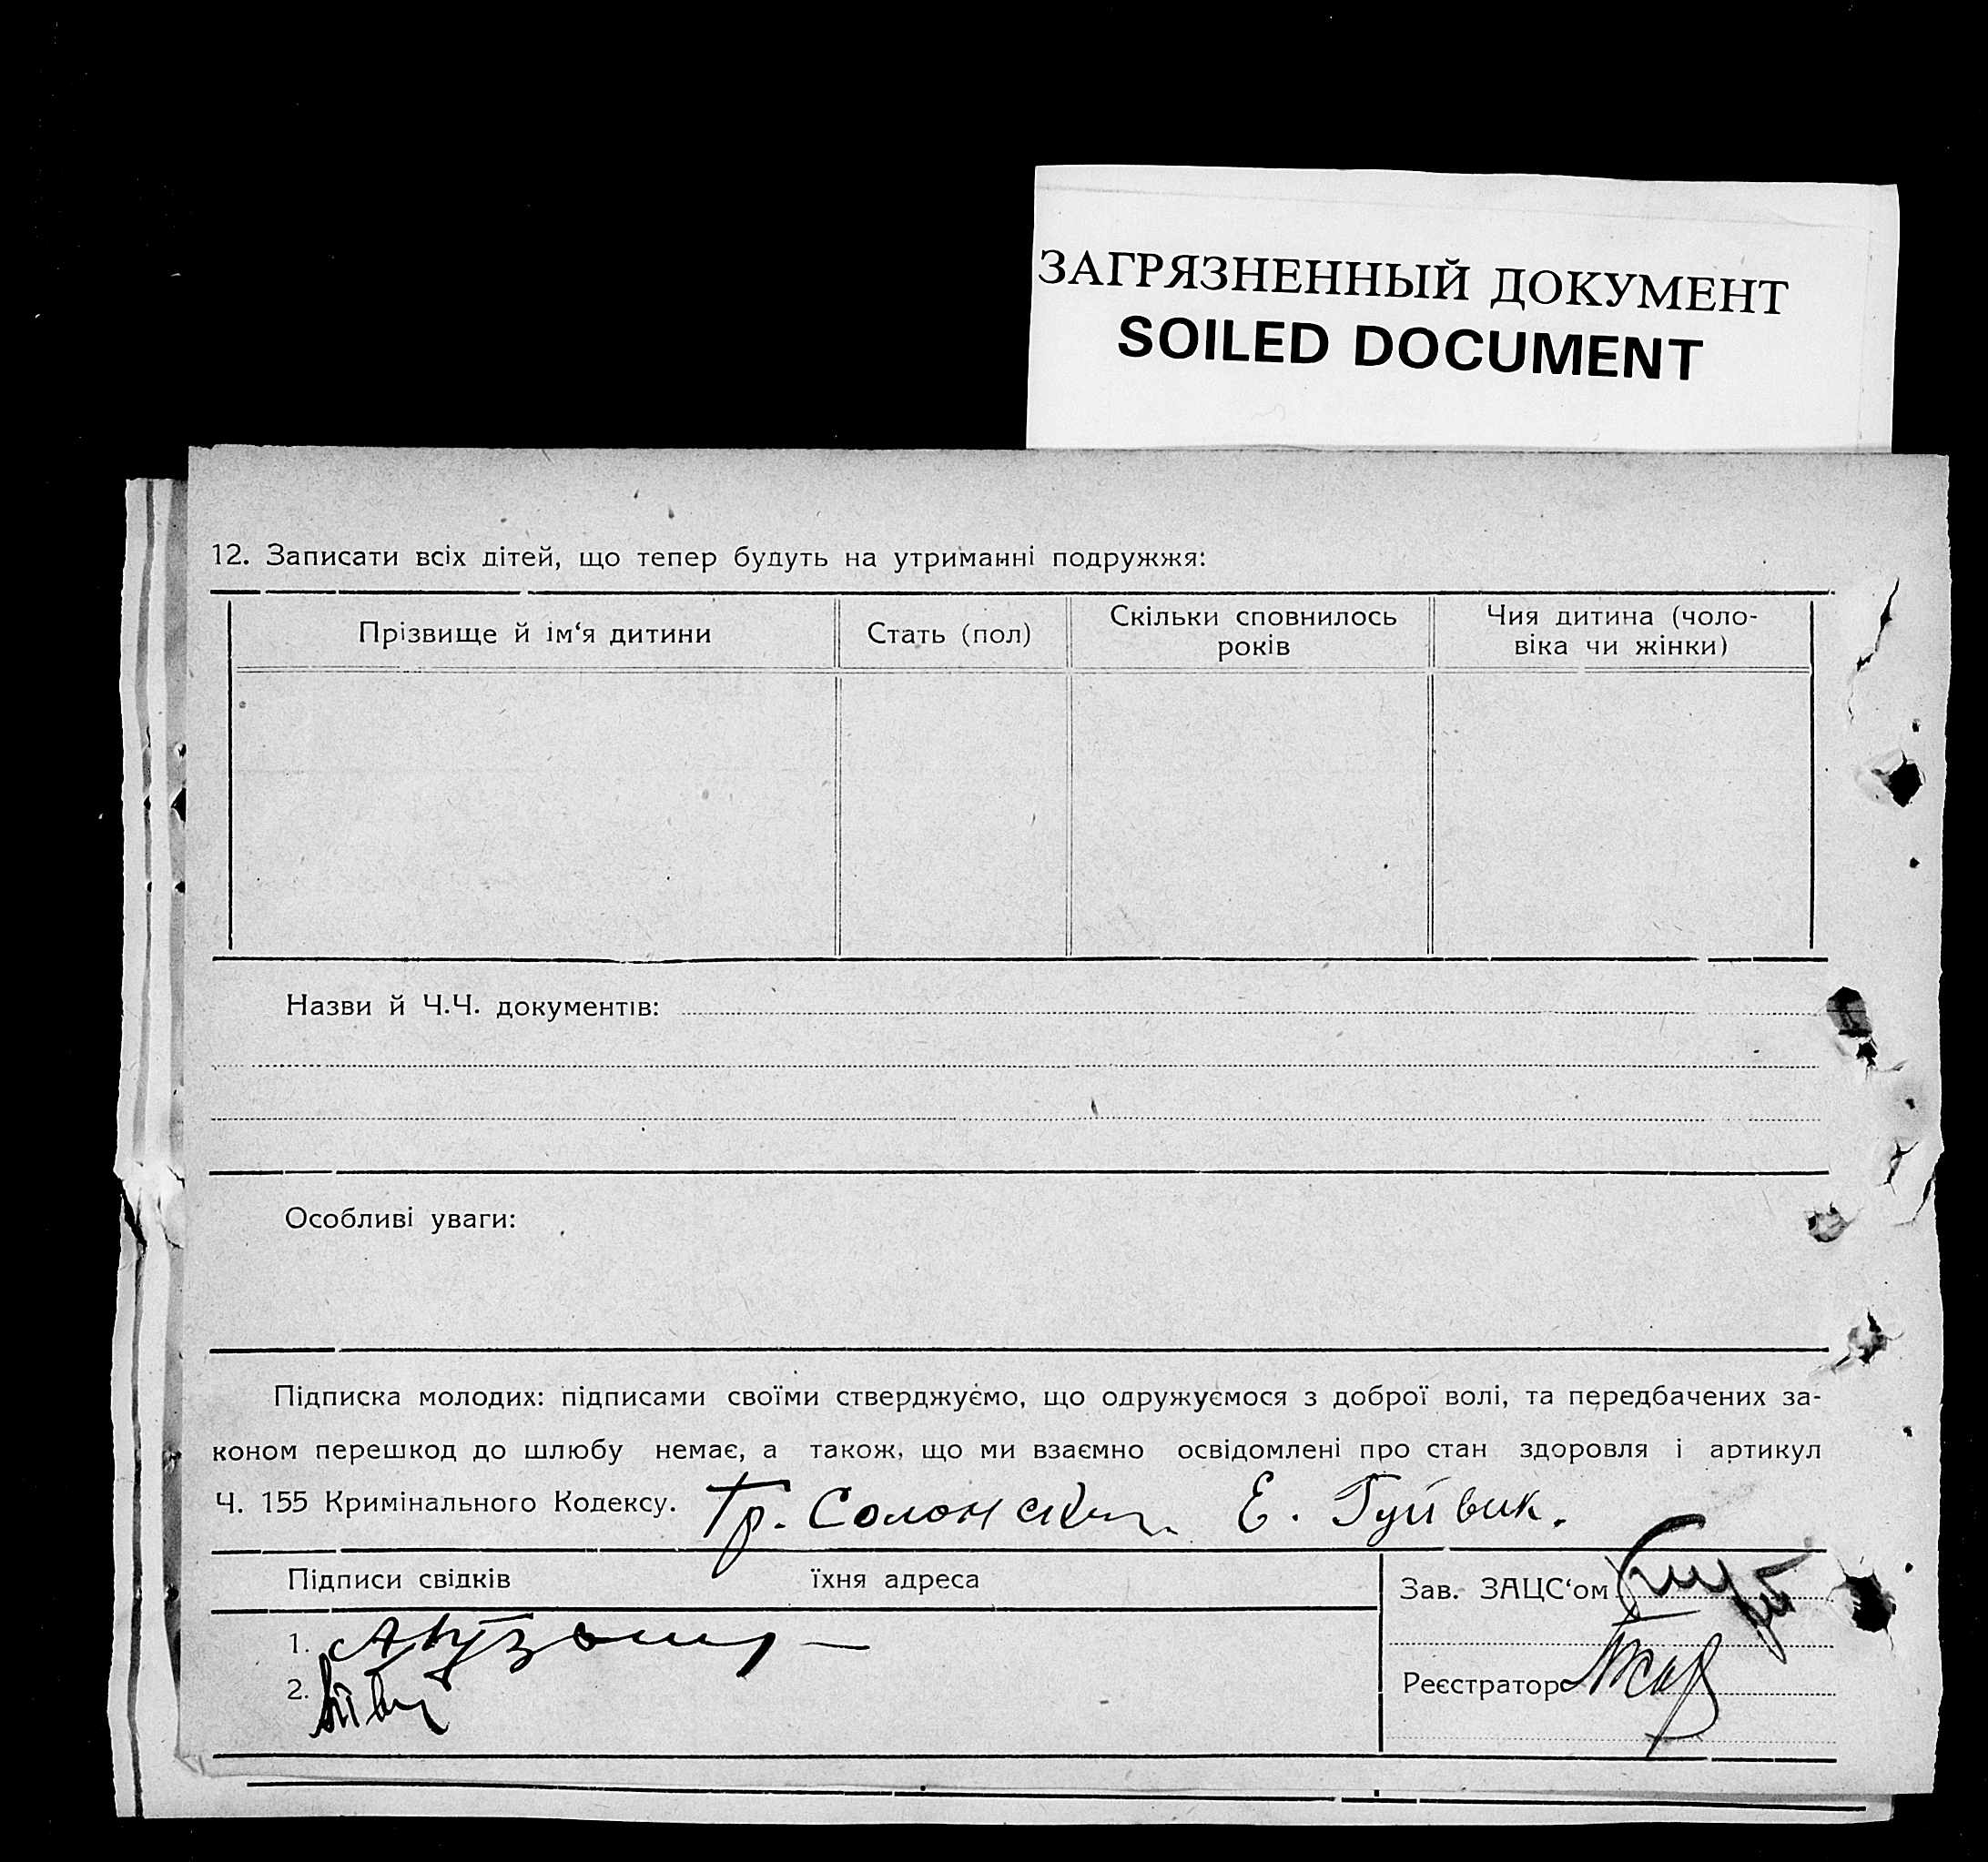 ЗАГРЯЗНЕННЫЙ ДОКУМЕНТ
SOILED DOCUMENT
12. Записати всіх дітей, що тепер будуть на утриманні подружжя:
Прізвище й ім‘я дитини
Стать (пол)
Скільки сповнилось
років
Чия дитина (чоло-
віка чи жінки)
Назви й Ч.Ч. документів:
Особливі уваги:
Підписка молодих: підписами своїми стверджуємо, що одружуємося з доброї волі, та передбачених за-
коном перешкод до шлюбу немає, а також, що ми взаємно освідомлені про стан здоровля і артикул
Ч. 155 Кримінального Кодексу. Гр. Е. Гуйвик.
Підписи свідків їхня адреса
Зав. ЗАЦС‘ом
1.
2.
Реєстратор